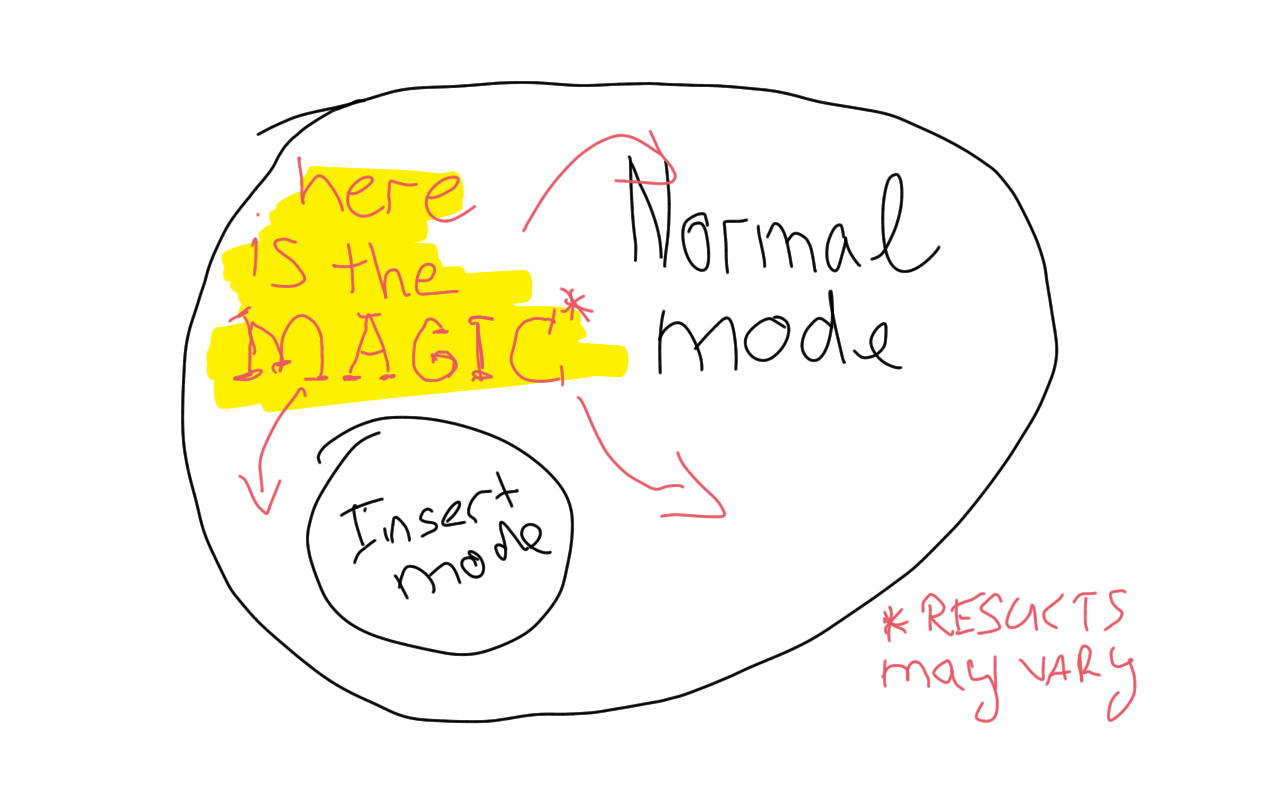 here
is the
MAGIC*
Normal
mode
Insert
mode
*RESULTS
may VARY